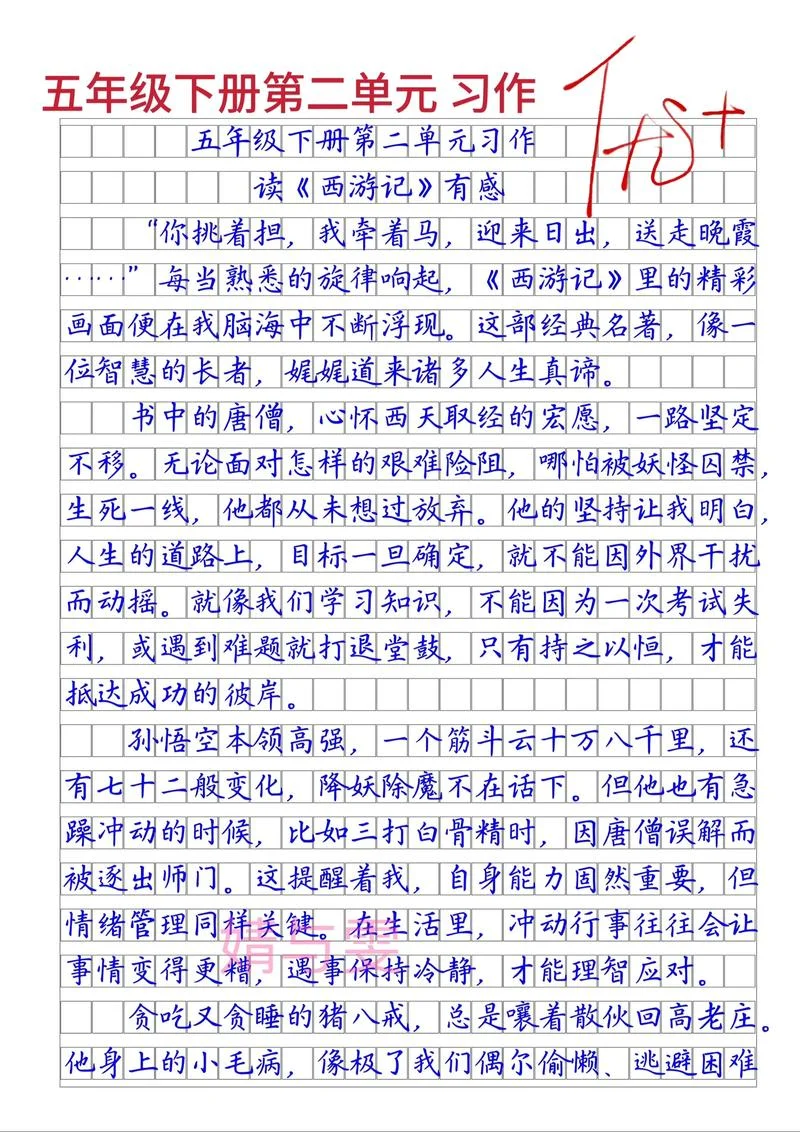 五年级下册第二单元 习作
优+
五年级下册第二单元习作
读《西游记》有感
“你挑着担，我牵着马，迎来日出，送走晚霞
……”每当熟悉的旋律响起，《西游记》里的精彩
画面便在我脑海中不断浮现。这部经典名著，像一
位智慧的长者，娓娓道来诸多人生真谛。
书中的唐僧，心怀西天取经的宏愿，一路坚定
不移。无论面对怎样的艰难险阻，哪怕被妖怪囚禁，
生死一线，他都从未想过放弃。他的坚持让我明白，
人生的道路上，目标一旦确定，就不能因外界干扰
而动摇。就像我们学习知识，不能因为一次考试失
利，或遇到难题就打退堂鼓，只有持之以恒，才能
抵达成功的彼岸。
孙悟空本领高强，一个筋斗云十万八千里，还
有七十二般变化，降妖除魔不在话下。但他也有急
躁冲动的时候，比如三打白骨精时，因唐僧误解而
被逐出师门。这提醒着我，自身能力固然重要，但
情绪管理同样关键。在生活里，冲动行事往往会让
事情变得更糟，遇事保持冷静，才能理智应对。
贪吃又贪睡的猪八戒，总是嚷着散伙回高老庄。
他身上的小毛病，像极了我们偶尔偷懒、逃避困难
婧与雯